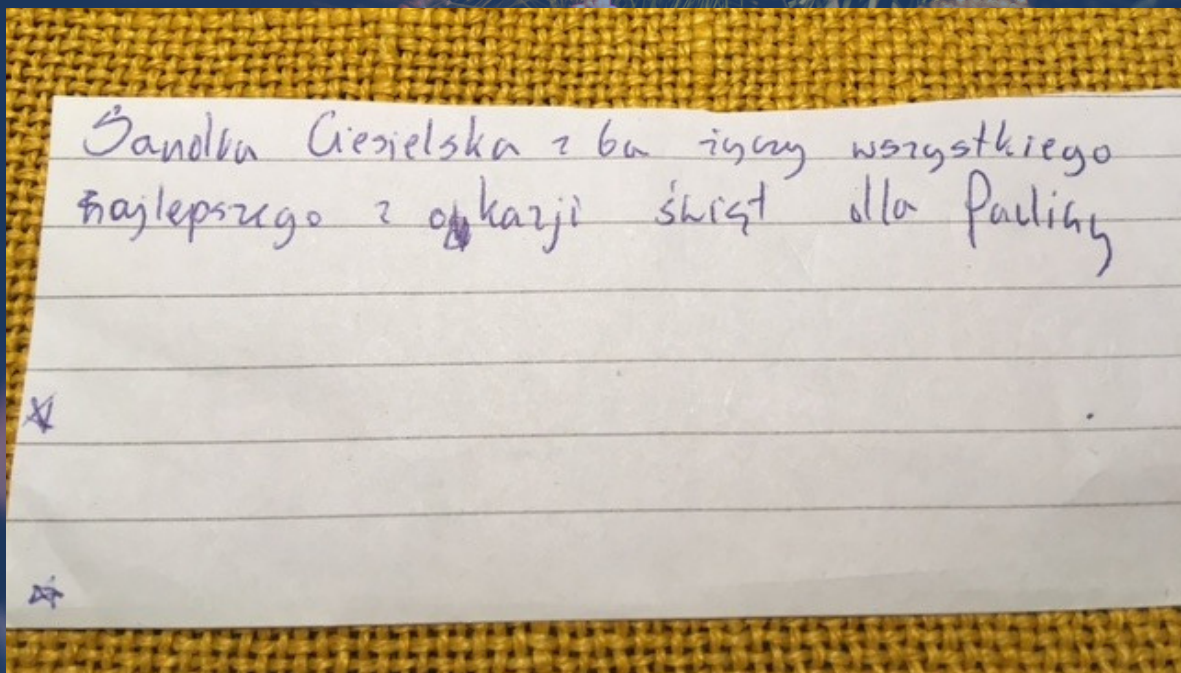 Sandra Ciesielska z 6a życzy wszystkiego
najlepszego z okazji świąt dla Pauliny